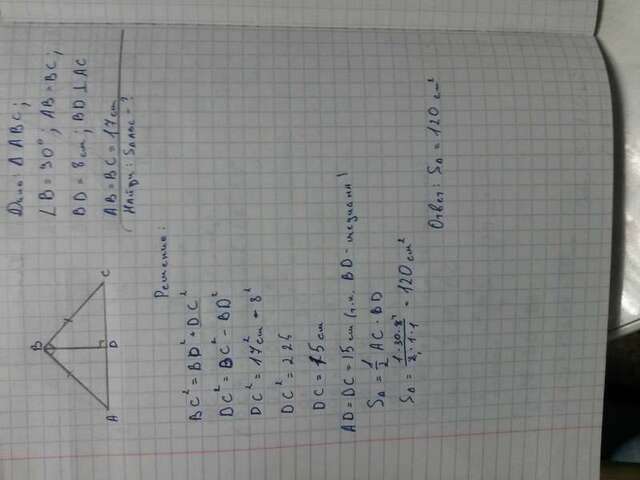 B
A
D
C
Дано: Δ ABC;
∠B = 90°; AB = BC;
BD = 8 cm; BD ⊥ AC
AB = BC = 17 cm
Найти: SΔABC - ?
Решение:
BC² = BD² + DC²
DC² = BC² - BD²
DC² = 17² cm - 8²
DC² = 225
DC = 15 cm
AD = DC = 15 cm (т.к. BD - медиана)
SΔ = 1/2 AC · BD
SΔ = 1 · 30 · 8 / 2 · 1 · 1 = 120 cm²
Ответ: SΔ = 120 cm²